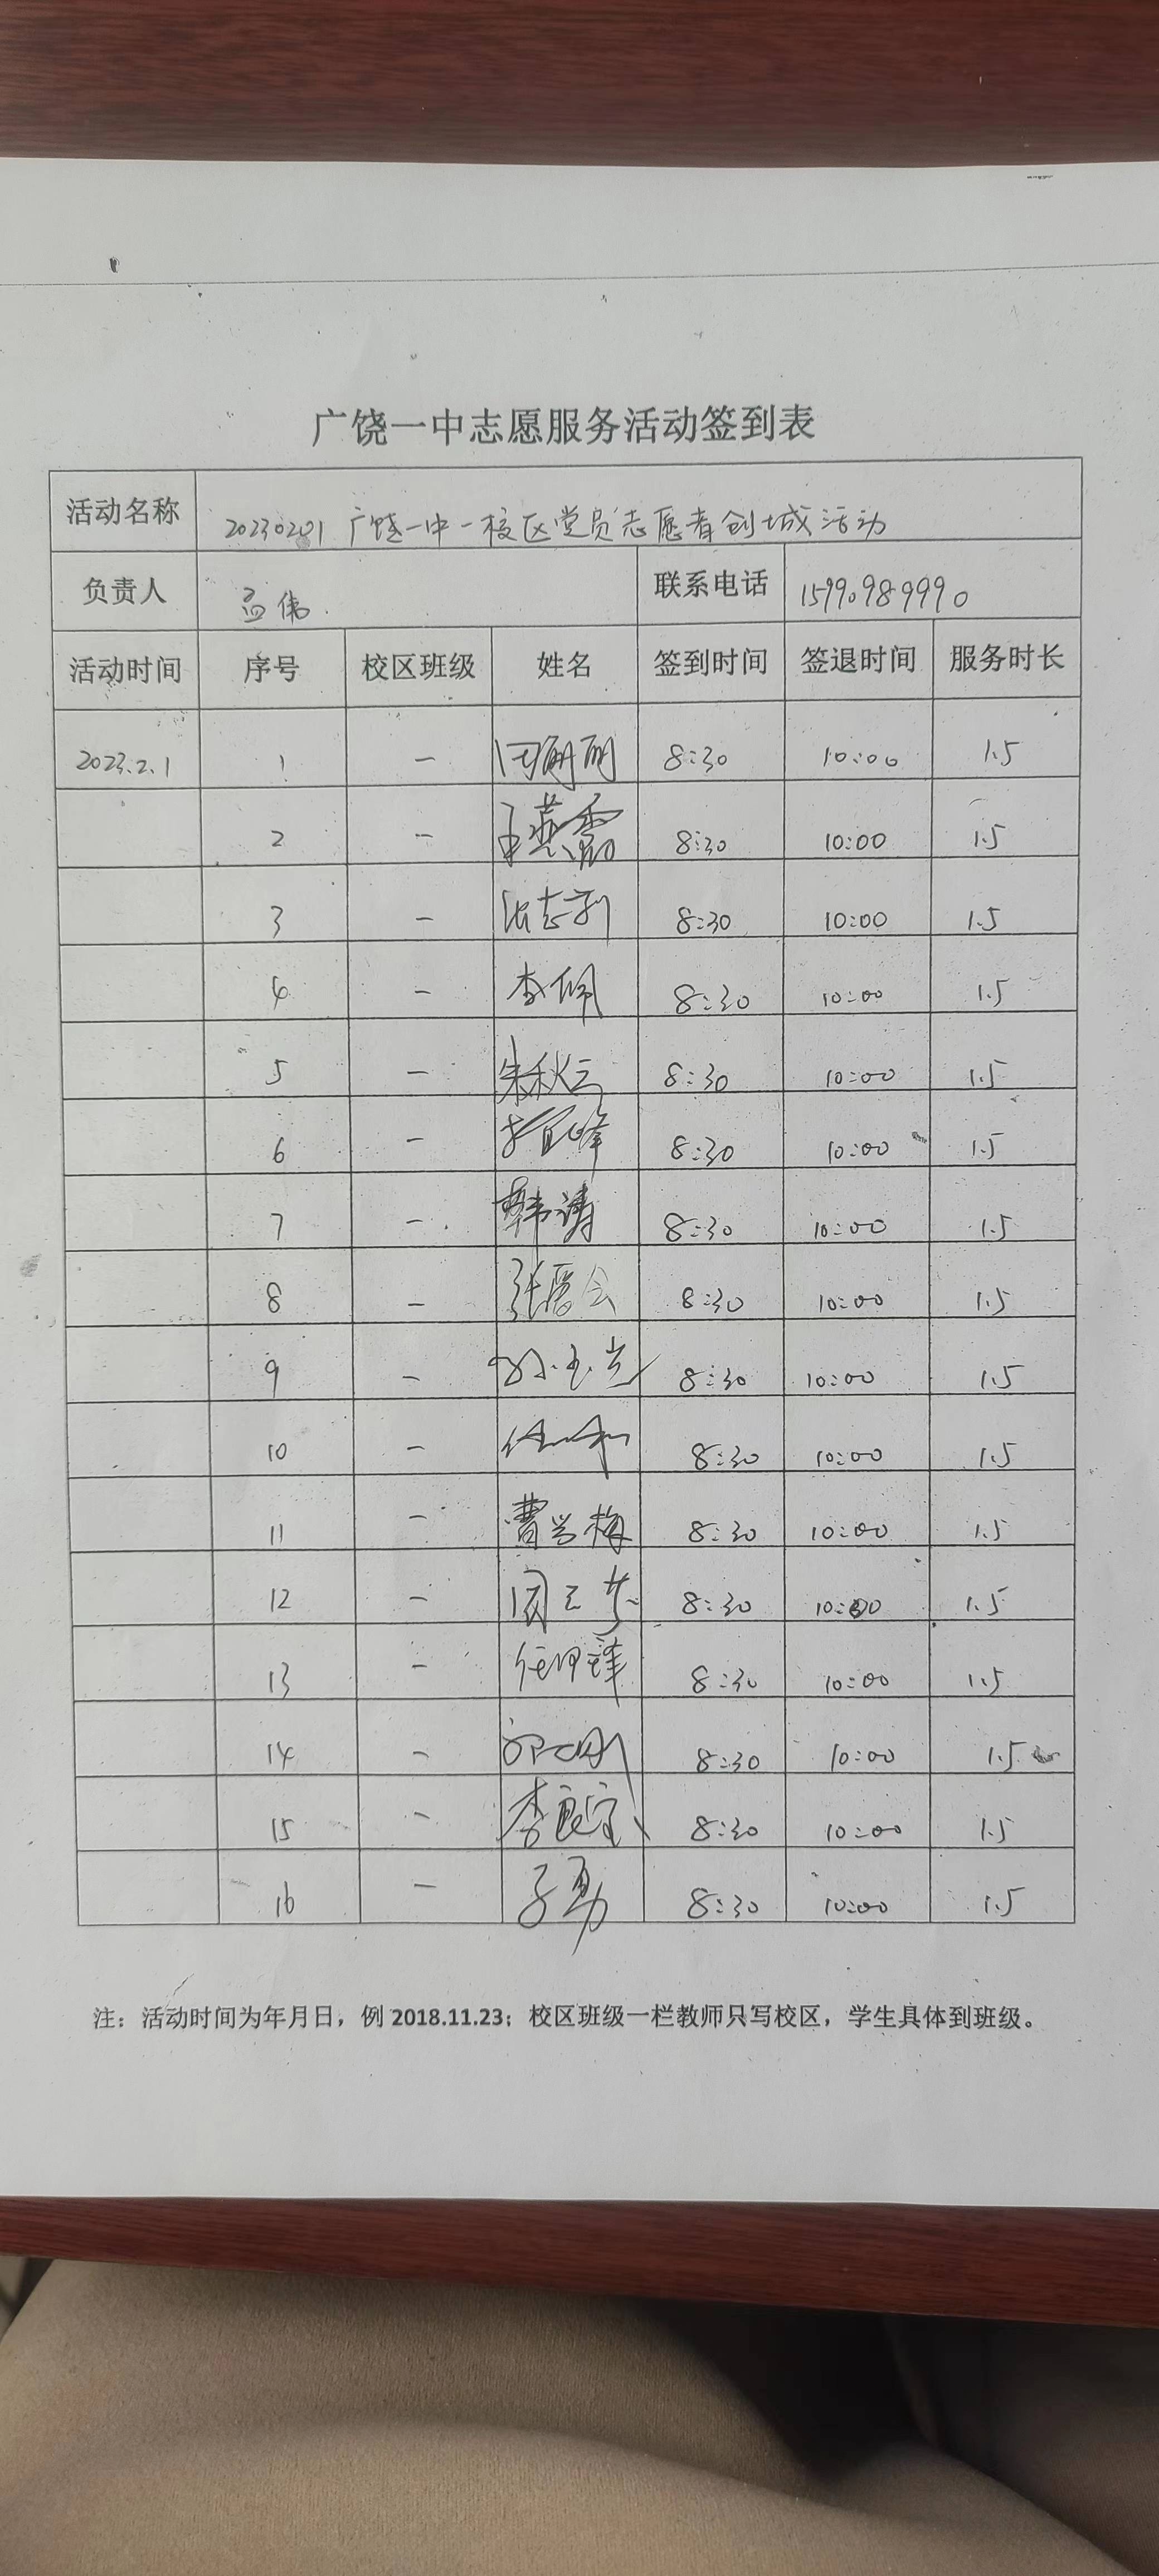 广饶一中志愿服务活动签到表
活动名称 20230201 广饶一中一校区党员志愿者创城活动
负责人 孟伟 联系电话 15990989990
活动时间 序号 校区班级 姓名 签到时间 签退时间 服务时长
2023.2.1 1 一 8:30 10:00 1.5
2 一 王燕霞 8:30 10:00 1.5
3 一 8:30 10:00 1.5
4 一 李佩 8:30 10:00 1.5
5 一 朱秋云 8:30 10:00 1.5
6 一 8:30 10:00 1.5
7 一 韩涛 8:30 10:00 1.5
8 一 8:30 10:00 1.5
9 一 8:30 10:00 1.5
10 一 8:30 10:00 1.5
11 一 曹学梅 8:30 10:00 1.5
12 一 8:30 10:00 1.5
13 一 8:30 10:00 1.5
14 一 8:30 10:00 1.5
15 一 李良宝 8:30 10:00 1.5
16 一 8:30 10:00 1.5
注：活动时间为年月日，例 2018.11.23；校区班级一栏教师只写校区，学生具体到班级。